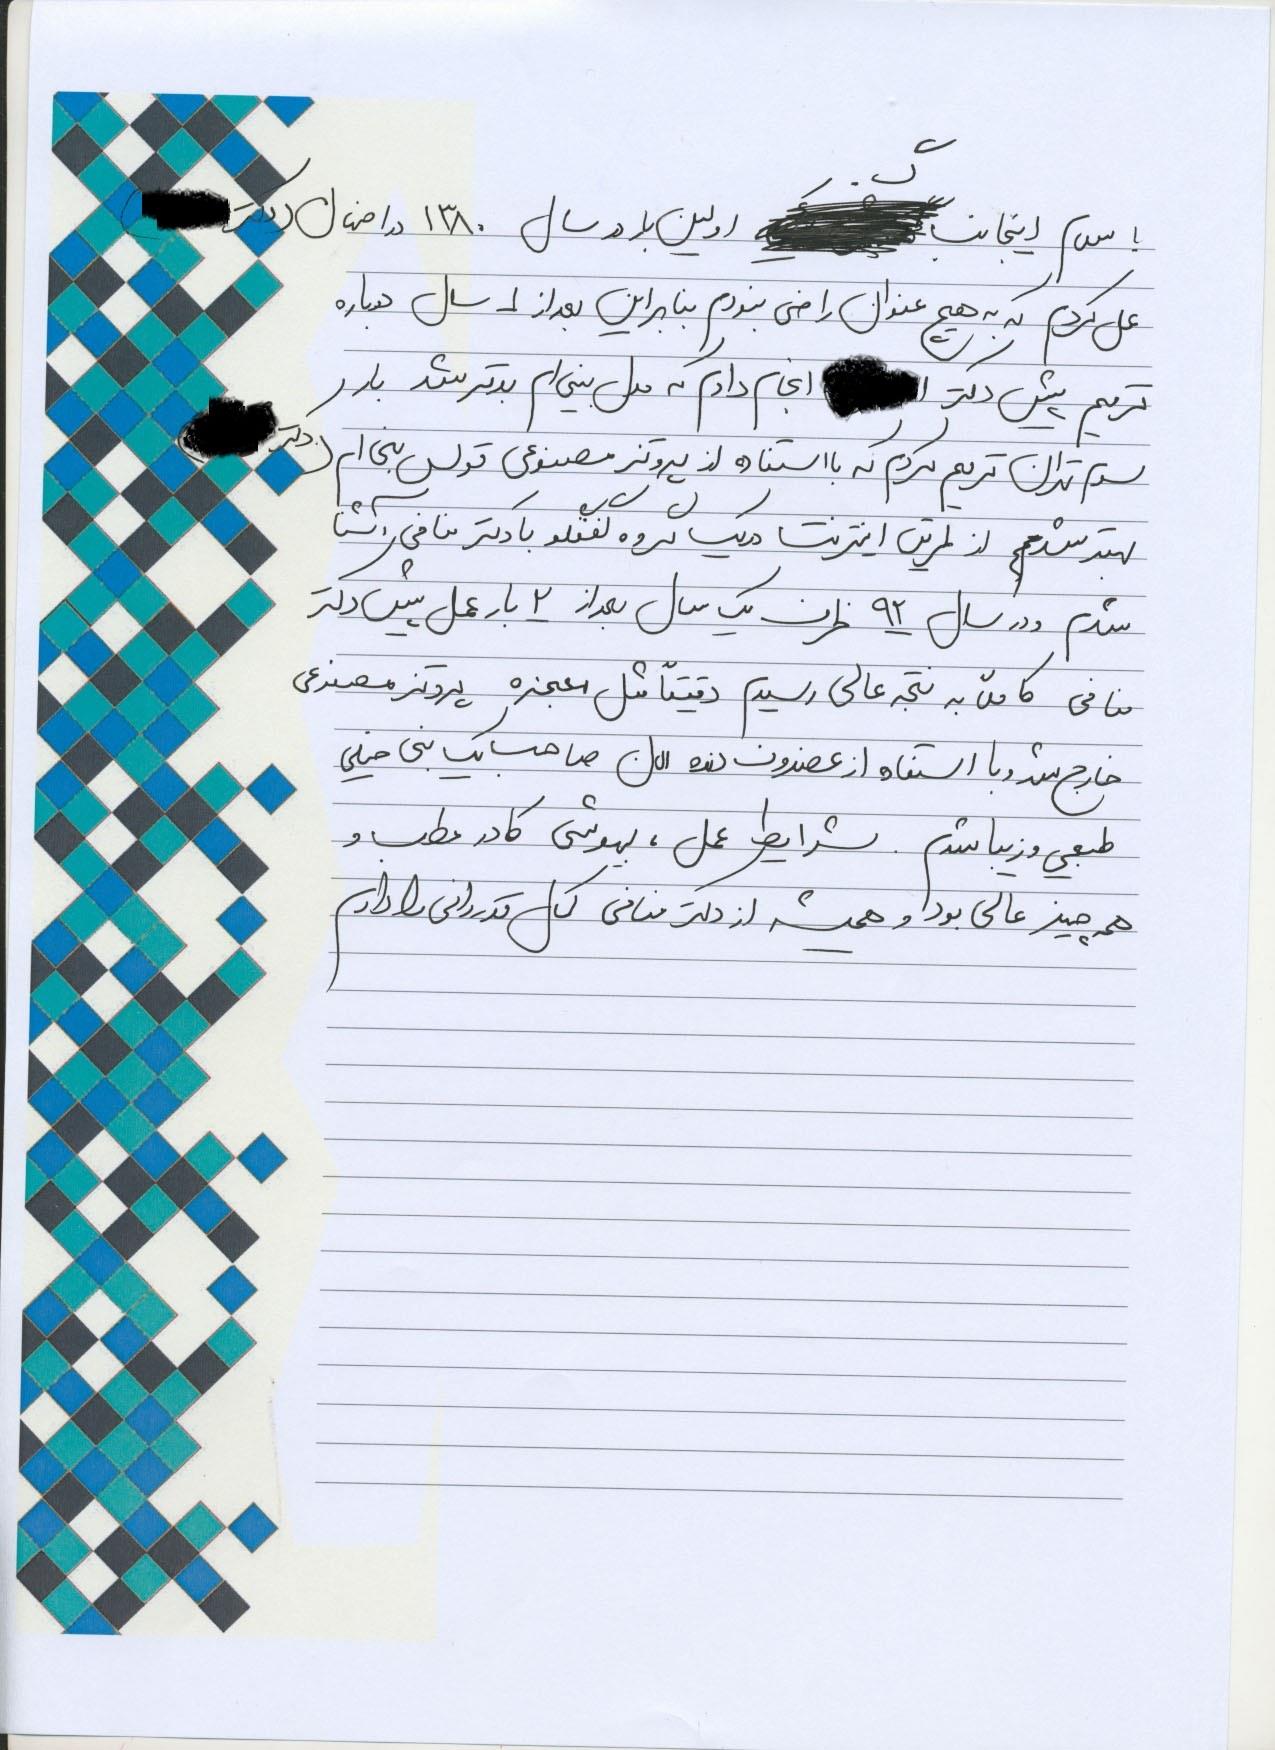 با سلام اینجانب ش. اولین بار در سال ۱۳۸۰ در اصفهان (دکتر
عمل کردم که به هیچ عنوان راضی نبودم بنابراین بعد از ۱ سال دوباره
ترمیم پیش دکتر ا انجام دادم که مدل بینی‌ام بدتر شد بار
سوم تهران ترمیم کردم که با استفاده از پروتز مصنوعی قوس بینی‌ام (دکتر
بهتر شد از طریق اینترنت در یک گروه گفتگو با دکتر منافی آشنا
شدم و در سال ۹۲ ظرف یک سال بعد از ۲ بار عمل پیش دکتر
منافی کاملاً به نتیجه عالی رسیدم دقیقاً مثل معجزه پروتز مصنوعی
خارج شد و با استفاده از غضروف دنده الان صاحب یک بینی خیلی
طبیعی و زیبا شدم. شرایط عمل، بیهوشی کادر مطب و
همه چیز عالی بود و همیشه از دکتر منافی کمال قدردانی را دارم